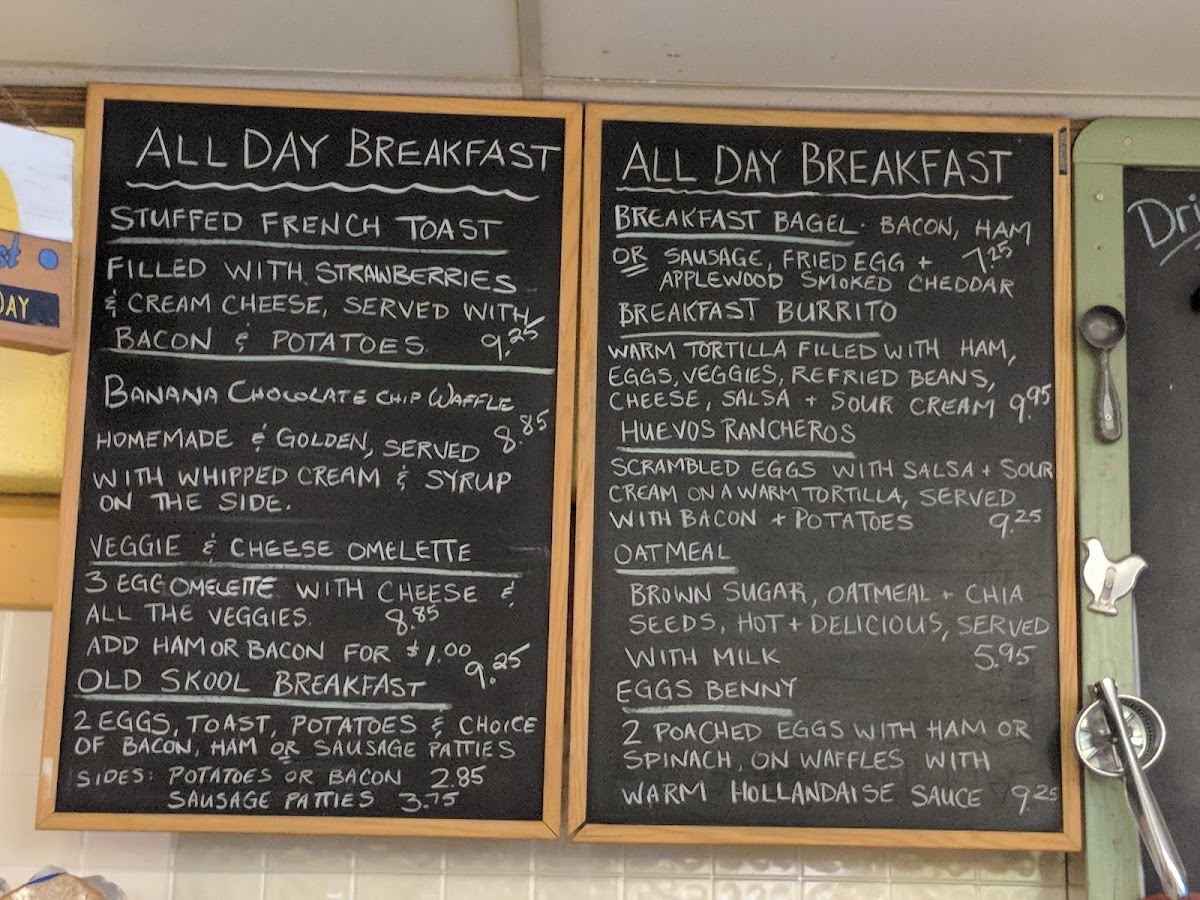 ALL DAY BREAKFAST
STUFFED FRENCH TOAST
FILLED WITH STRAWBERRIES
& CREAM CHEESE, SERVED WITH
BACON & POTATOES 9.25
BANANA CHOCOLATE CHIP WAFFLE
HOMEMADE & GOLDEN, SERVED 8.85
WITH WHIPPED CREAM & SYRUP
ON THE SIDE.
VEGGIE & CHEESE OMELETTE
3 EGG OMELETTE WITH CHEESE &
ALL THE VEGGIES. 8.85
ADD HAM OR BACON FOR $1.00
OLD SKOOL BREAKFAST 9.25
2 EGGS, TOAST, POTATOES & CHOICE
OF BACON, HAM OR SAUSAGE PATTIES
SIDES: POTATOES OR BACON 2.85
SAUSAGE PATTIES 3.75
ALL DAY BREAKFAST
BREAKFAST BAGEL. BACON, HAM
OR SAUSAGE, FRIED EGG + 7.25
APPLEWOOD SMOKED CHEDDAR
BREAKFAST BURRITO
WARM TORTILLA FILLED WITH HAM,
EGGS, VEGGIES, REFRIED BEANS,
CHEESE, SALSA + SOUR CREAM 9.95
HUEVOS RANCHEROS
SCRAMBLED EGGS WITH SALSA + SOUR
CREAM ON A WARM TORTILLA, SERVED
WITH BACON + POTATOES 9.25
OATMEAL
BROWN SUGAR, OATMEAL + CHIA
SEEDS, HOT + DELICIOUS, SERVED
WITH MILK 5.95
EGGS BENNY
2 POACHED EGGS WITH HAM OR
SPINACH, ON WAFFLES WITH
WARM HOLLANDAISE SAUCE 9.25
Dri
st
DAY